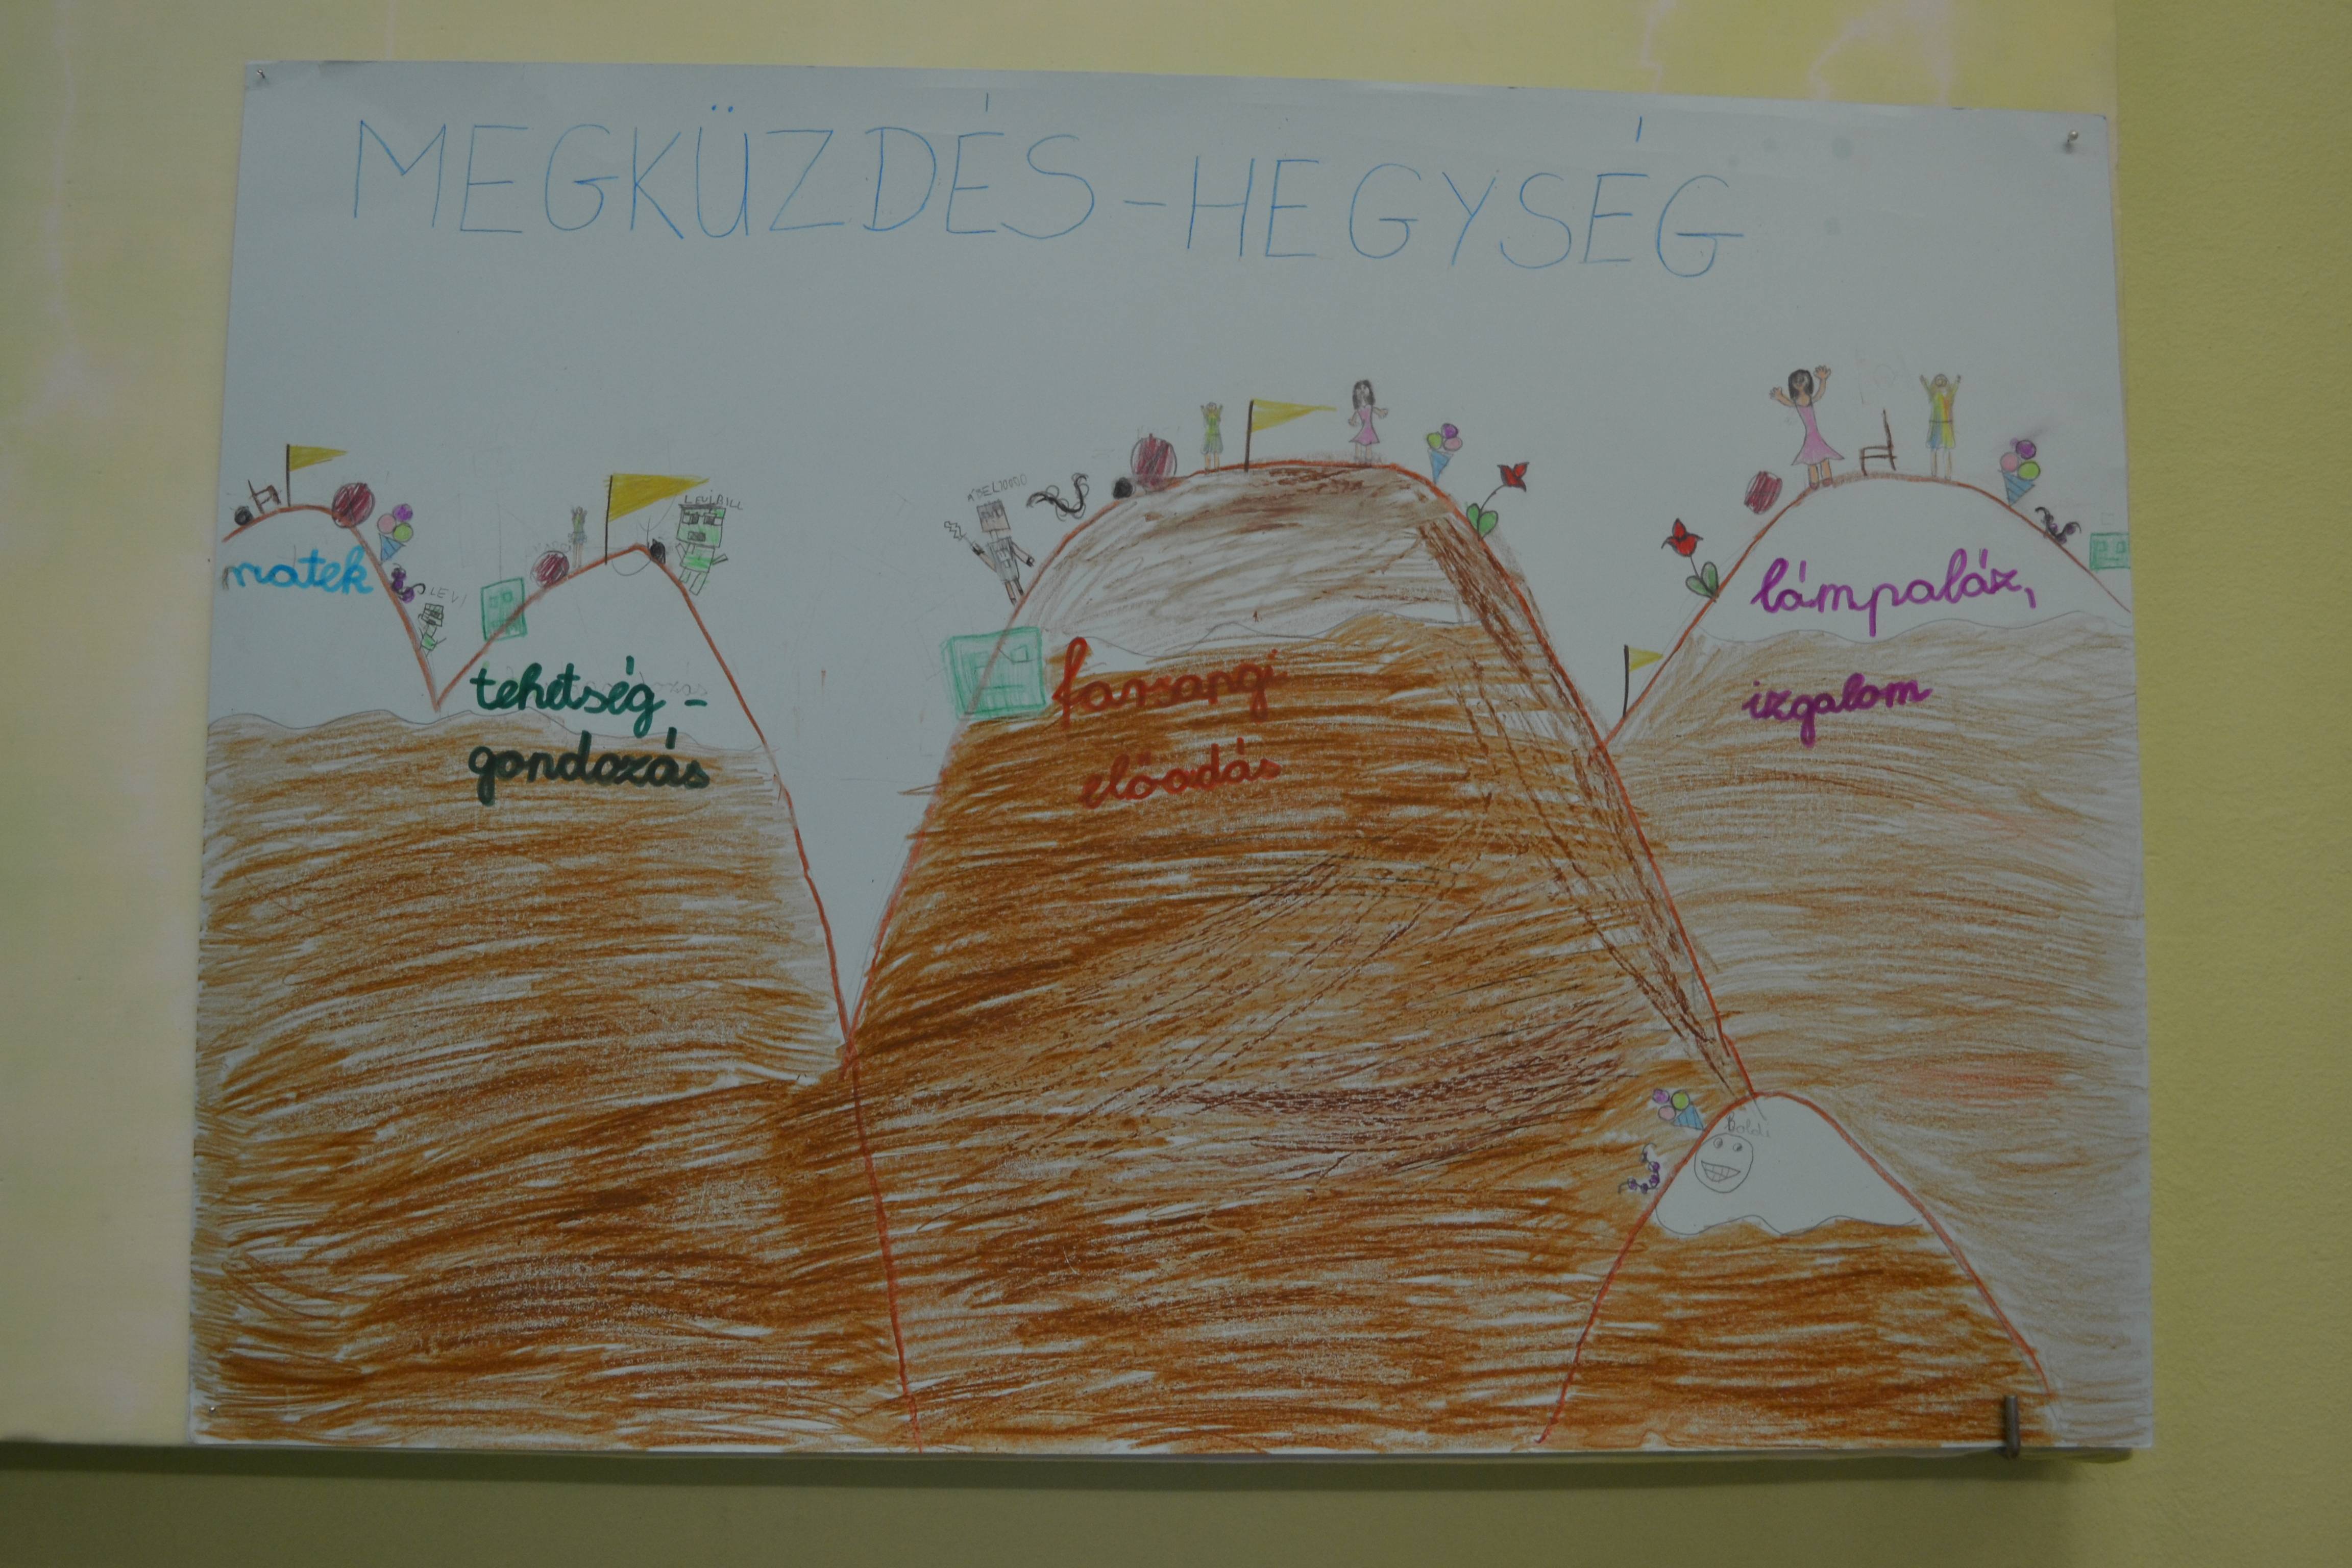 MEGKÜZDÉS-HEGYSÉG
matek
LEVI
LEVIBILL
tehetség-
gondozás
farsangi
előadás
lámpaláz,
izgalom
Boldi